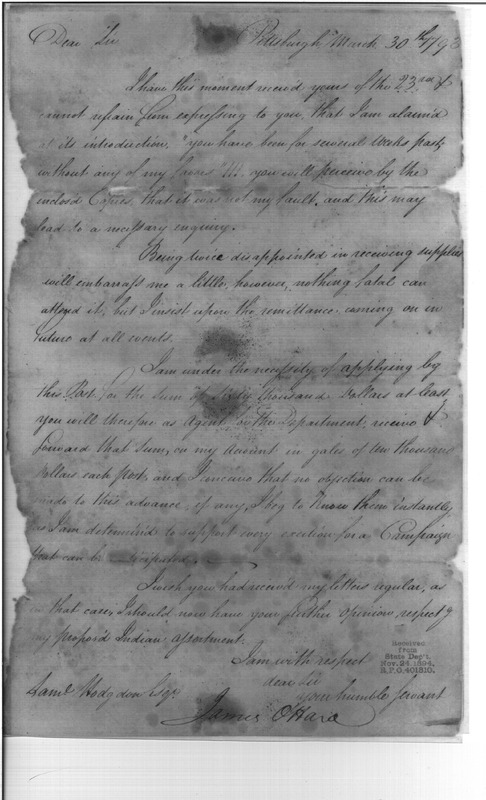 Dear Sir
Pittsburgh March 30th 1793
I have this moment receiv'd yours of the 23rd &
cannot refrain from expressing to you, that I am alarm'd
at its introduction, "you have been for several weeks past,
without any of my favors"!!! you will perceive by the
inclosd Copies, that it was not my fault, and this may
lead to a necessary enquiry.
Being twice disappointed in receiving supplies
will embarrass me a little, however, nothing fatal can
attend it, but I insist upon the remittance, coming on in
future at all events.
I am under the necessity of applying by
this Post, for the Sum of Sixty thousand Dollars at least,
you will therefore as Agent for the Department, receive &
forward that Sum, on my Account in of ten thousand
Dollars each post, and I conceive that no objection can be
made to this advance, if any, I beg to know them instantly
as I am determined to support every exertion for a Campaign
that can be
I wish you had receiv'd my letters regular, as
in that case, I should now have your further opinion, respectg
my propos'd Indian assortment.
I am with respect
dear Sir
your humble Servant
Saml Hodgdon Esqr
James O'Hara
Received
from
State Dep't.
Nov. 24, 1894.
R.P.O. 401810.